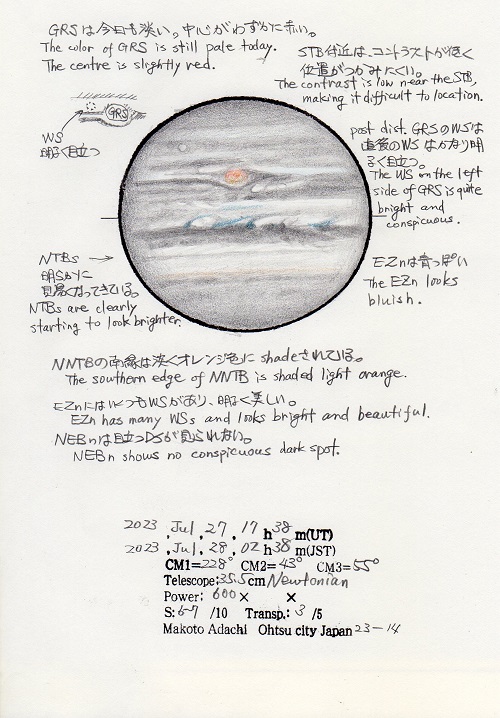 GRSは今日も淡い。中心がわずかに赤い。
The color of GRS is still pale today.
The centre is slightly red.
STB付近は、コントラストが低く
位置がつかみにくい。
The contrast is low near the STB,
making it difficult to location.
GRS
WS
明るく目立つ
post dist. GRSのWSは
直後のWSはかなり明
るく目立つ。
The WS on the left
side of GRS is quite
bright and
conspicuous.
NTBs →
明らかに
見易くなってきている。
NTBs are clearly
starting to look brighter.
EZnは青っぽい
The EZn looks
bluish.
NNTBの南縁は淡くオレンジ色に shadeされている。
The southern edge of NNTB is shaded light orange.
EZnにはいくつもWSがあり、明るく美しい。
EZn has many WSs and looks bright and beautiful.
NEBnは目立つDSが見られない。
NEBn shows no conspicuous dark spot.
2023, Jul, 27, 17 h 38 m(UT)
2023, Jul, 28, 02 h 38 m(JST)
CM1=228° CM2=43° CM3=55°
Telescope:35.5cm Newtonian
Power: 600× ×
S: 6-7 /10 Transp.: 3 /5
Makoto Adachi Ohtsu city Japan 23-14